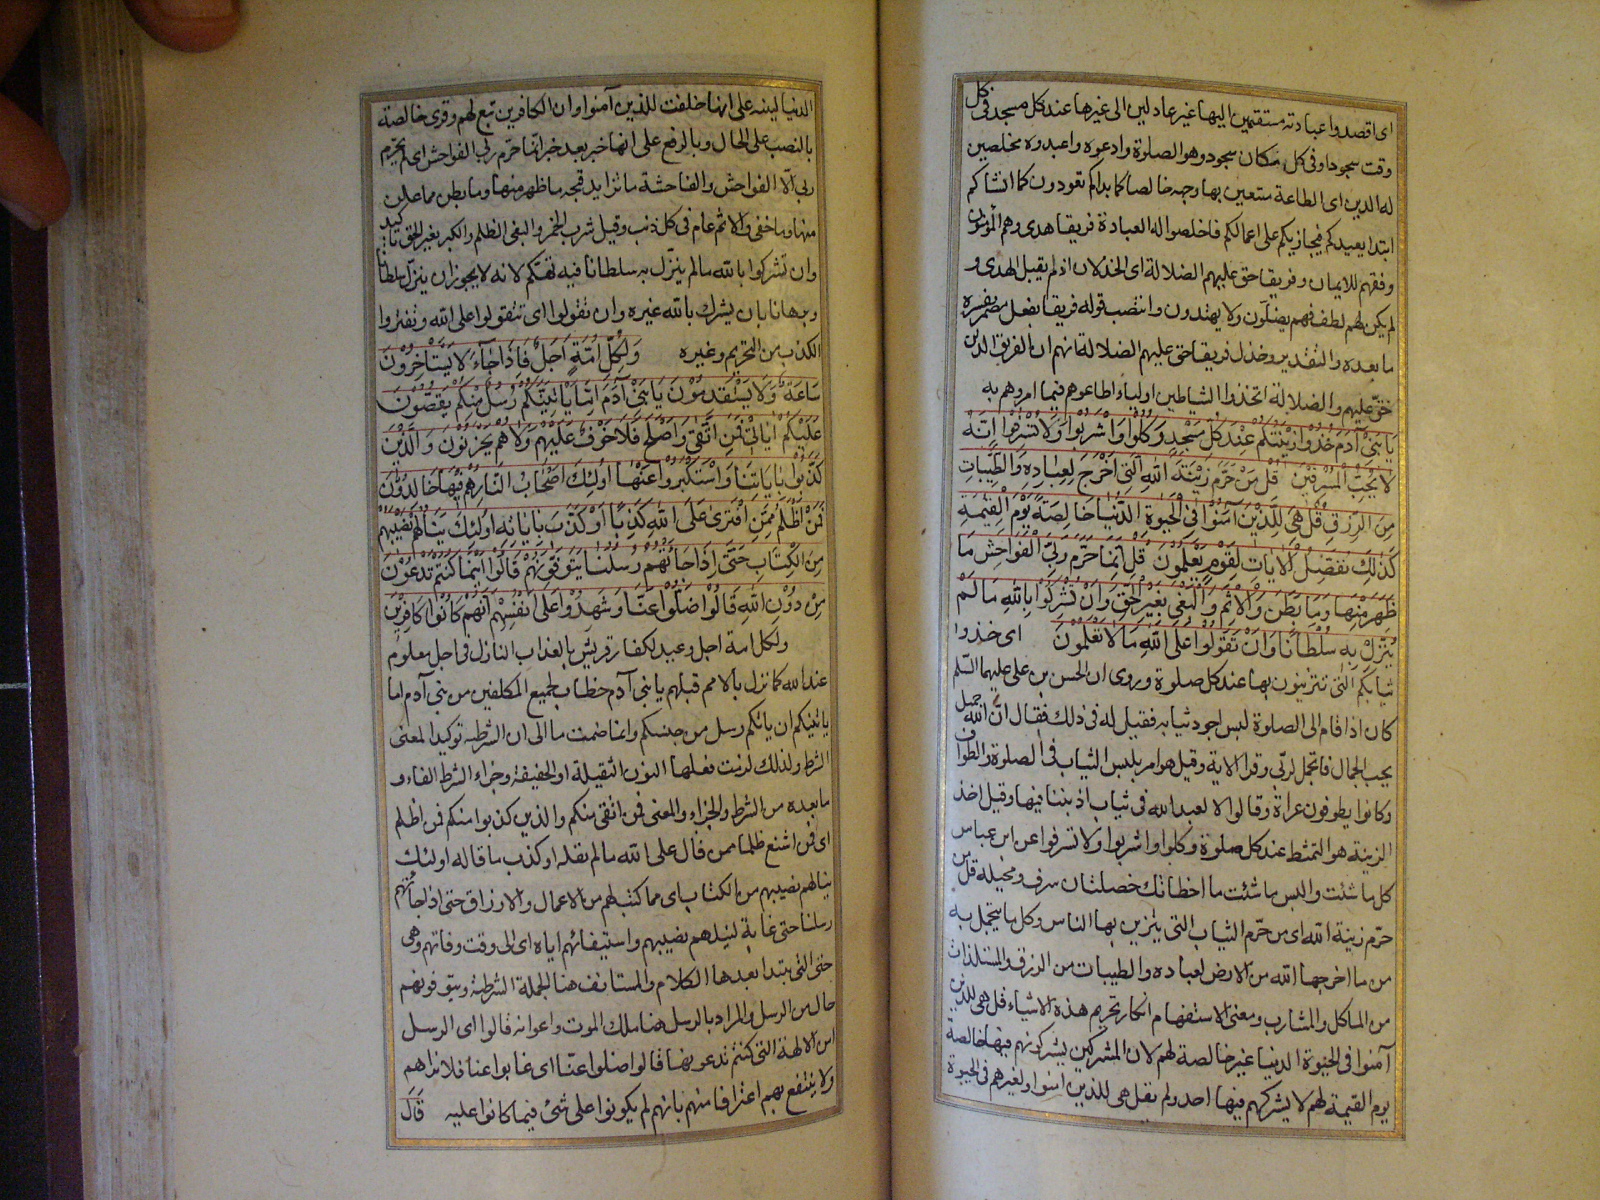 اى اقصدوا عبادته مستقيمين اليها غير عادلين الى غيرها عند كل مسجد فى كل
وقت سجود او فى كل مكان سجود وهو الصلوة وادعوه واعبدوه مخلصين
له الدين اى الطاعة متعين بها وجهه خالصا كما بداكم تعودون كما انشاكم
ابتدا يعيدكم فيجازيكم على اعمالكم فاخلصوا له العبادة فريقا هدى وهم المؤمنون
وفقهم للايمان وفريقا حق عليهم الضلالة اى الخذلان اذ لم يقبل الهدى و
لم يكن لهم لطف فهم يضلون ولا يهتدون وانتصب قوله فريقا بفعل مضمر يفسره
ما بعده والتقدير وخذل فريقا حق عليهم الضلالة انهم ان الفريق الذين
حق عليهم الضلالة اتخذوا الشياطين اولياء اطاعوهم فيما امروهم به
يَا بَنِى آدَمَ خُذُوا زِينَتَكُمْ عِنْدَ كُلِّ مَسْجِدٍ وَكُلُوا وَاشْرَبُوا وَلَا تُسْرِفُوا اِنَّهُ
لَا يُحِبُّ الْمُسْرِفِينَ قُلْ مَنْ حَرَّمَ زِينَةَ اللهِ الَّتِى اَخْرَجَ لِعِبَادِهِ وَالطَّيِّبَاتِ
مِنَ الرِّزْقِ قُلْ هِىَ لِلَّذِينَ آمَنُوا فِى الْحَيٰوةِ الدُّنْيَا خَالِصَةً يَوْمَ الْقِيٰمَةِ
كَذٰلِكَ نُفَصِّلُ الْآيَاتِ لِقَوْمٍ يَعْلَمُونَ قُلْ اِنَّمَا حَرَّمَ رَبِّىَ الْفَوَاحِشَ مَا
ظَهَرَ مِنْهَا وَمَا بَطَنَ وَالْاِثْمَ وَالْبَغْىَ بِغَيْرِ الْحَقِّ وَاَنْ تُشْرِكُوا بِاللهِ مَا لَمْ
يُنَزِّلْ بِهِ سُلْطَانًا وَاَنْ تَقُولُوا عَلَى اللهِ مَا لَا تَعْلَمُونَ اى خذوا
ثيابكم التى تتزينون بها عند كل صلوة وروى ان الحسن بن على عليهما السلم
كان اذا قام الى الصلوة لبس اجود ثيابه فقيل له فى ذلك فقال ان الله جميل
يحب الجمال فاتجمل لربى وقرا الاية وقيل هو امر بلبس الثياب فى الصلوة والطواف
وكانوا يطوفون عراة وقالوا لا نعبد الله فى ثياب اذنبنا فيها وقيل اخذ
الزينة هو التمشط عند كل صلوة وكلوا واشربوا ولا تسرفوا عن ابن عباس
كل ما شئت والبس ما شئت ما اخطاتك خصلتان سرف ومخيلة قل من
حرم زينة الله اى من حرم الثياب التى يتزين بها الناس وكل ما يتجمل به
من ما اخرجها الله من الارض لعباده والطيبات من الرزق والمستلذات
من الماكل والمشارب ومعنى الاستفهام انكار تحريم هذه الاشياء قل هى للذين
آمنوا فى الحيوة الدنيا غير خالصة لهم لان المشركين يشركونهم فيها خالصة
يوم القيمة لهم لا يشركهم فيها احد ولم يقل هى للذين امنوا ولغيرهم فى الحيوة
الدنيا لينبه على انها خلقت للذين آمنوا وان الكافرين تبع لهم وقرى خالصة
بالنصب على الحال وبالرفع على انها خبر بعد خبر انما حرم ربى الفواحش اى لم يحرم
ربى الا الفواحش والفاحشة ما تزايد قبحه ما ظهر منها وما بطن مما علن
منها وما خفى والاثم عام فى كل ذنب وقيل شرب الخمر والبغى الظلم والكبر بغير الحق تاكيد
وان تشركوا بالله ما لم ينزل به سلطانا فيه تهكم لانه لا يجوز ان ينزل سلطانا
وبرهانا بان يشرك بالله غيره وان تقولوا اى تتقولوا على الله وتفتروا
الكذب من التحريم وغيره وَلِكُلِّ اُمَّةٍ اَجَلٌ فَاِذَا جَاءَ لَا يَسْتَاْخِرُونَ
سَاعَةً وَلَا يَسْتَقْدِمُونَ يَا بَنِى آدَمَ اِمَّا يَاْتِيَنَّكُمْ رُسُلٌ مِنْكُمْ يَقُصُّونَ
عَلَيْكُمْ اٰيَاتِى فَمَنِ اتَّقٰى وَاَصْلَحَ فَلَا خَوْفٌ عَلَيْهِمْ وَلَا هُمْ يَحْزَنُونَ وَالَّذِينَ
كَذَّبُوا بِاٰيَاتِنَا وَاسْتَكْبَرُوا عَنْهَا اُولٰئِكَ اَصْحَابُ النَّارِ هُمْ فِيهَا خَالِدُونَ
فَمَنْ اَظْلَمُ مِمَّنِ افْتَرٰى عَلَى اللهِ كَذِبًا اَوْ كَذَّبَ بِاٰيَاتِهِ اُولٰئِكَ يَنَالُهُمْ نَصِيبُهُمْ
مِنَ الْكِتَابِ حَتّٰى اِذَا جَائَتْهُمْ رُسُلُنَا يَتَوَفَّوْنَهُمْ قَالُوا اَيْنَمَا كُنْتُمْ تَدْعُونَ
مِنْ دُونِ اللهِ قَالُوا ضَلُّوا عَنَّا وَشَهِدُوا عَلٰى اَنْفُسِهِمْ اَنَّهُمْ كَانُوا كَافِرِينَ
ولكل امة اجل وعيد لكفار قريش بالعذاب النازل فى اجل معلوم
عند الله كما نزل بالامم قبلهم يا بنى آدم خطاب لجميع المكلفين من بنى آدم اما
ياتينكم ان ياتكم رسل من جنسكم وانما ضمت ما الى ان الشرطية توكيدا لمعنى
الشرط ولذلك لزمت فعلها النون الثقيلة او الخفيفة وجزاء الشرط الفاء و
ما بعده من الشرط والجزاء والمعنى فمن اتقى منكم والذين كذبوا منكم فمن اظلم
اى فمن اشنع ظلما ممن قال على الله ما لم يقله او كذب ما قاله اولئك
ينالهم نصيبهم من الكتاب اى مما كتب لهم من الاعمال والارزاق حتى اذا جاءتهم
رسلنا حتى غاية لنيلهم نصيبهم واستيفائهم اياه اى الى وقت وفاتهم وهى
حتى التى يبتدا بعدها الكلام والمستانف هنا الجملة الشرطية ويتوفونهم
حال من الرسل والمراد بالرسل هنا ملك الموت واعوانه قالوا اى الرسل
اين الالهة التى كنتم تدعونها قالوا ضلوا عنا اى غابوا عنا فلا نراهم
ولا ينتفع بهم اعترافا منهم بانهم لم يكونوا على شئ فيما كانوا عليه قَالَ